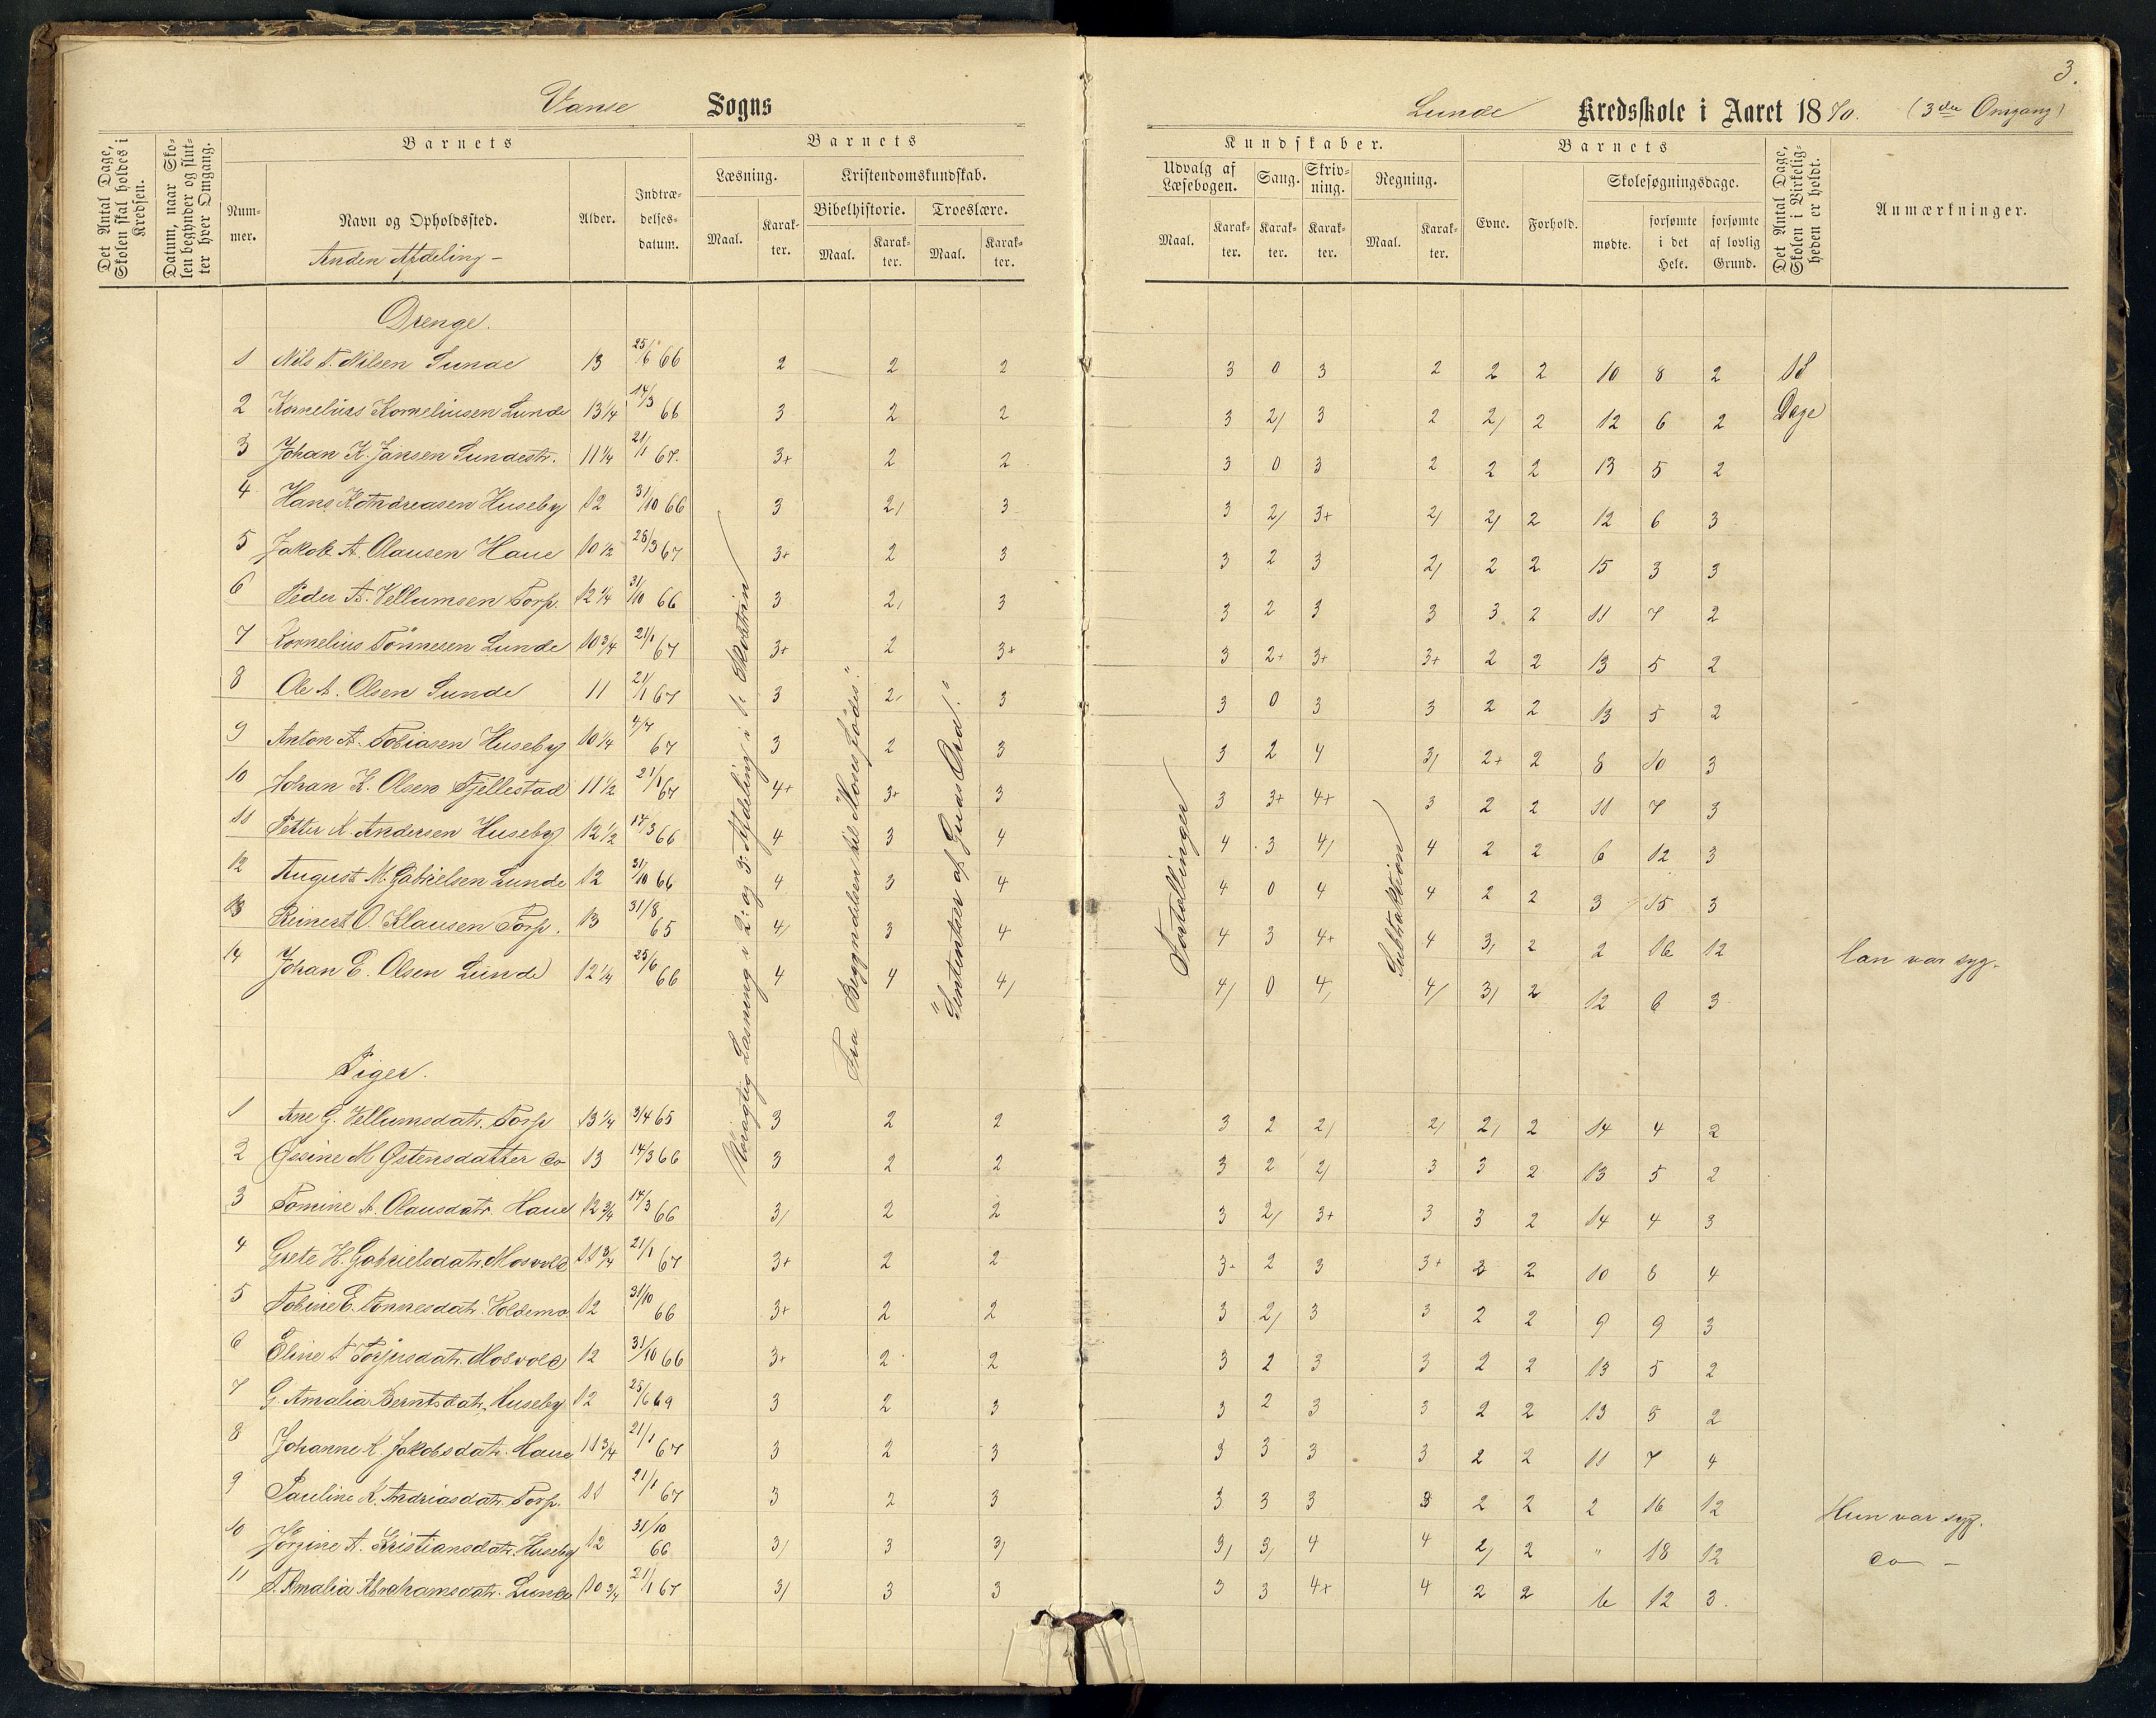 3.
Vanse Sogns
Lunde Kredsskole i Aaret 1870. (3die Omgang)
Det Antal Dage, Skolen skal holdes i Kredsen.
Datum, naar Skolen begynder og slutter hver Omgang.
Barnets
Nummer.
Navn og Opholdssted.
Anden Afdeling –
Alder.
Indtrædelsesdatum.
Barnets
Læsning.
Maal.
Karakter.
Kristendomskundskab.
Bibelhistorie.
Maal.
Karakter.
Troeslære.
Maal.
Karakter.
Kundskaber.
Udvalg af Læsebogen.
Maal.
Karakter.
Sang.
Karakter.
Skrivning.
Karakter.
Regning.
Maal.
Karakter.
Barnets
Evne.
Forhold.
Skolesøgningsdage.
mødte.
forsømte i det Hele.
forsømte af lovlig Grund.
Det Antal Dage, Skolen i Virkeligheden er holdt.
Anmærkninger.
Drenge.
1 Nils T. Nilsen Lunde 13 25/6 66 2 2 2 3 0 3 2 2 2 10 8 2 18
2 Kornelius Korneliusen Lunde 13 1/4 14/3 66 3 2 2 3 2/ 3 2 2/ 2 12 6 2 Dage
3 Johan K. Jansen Lundestr. 11 1/4 21/1 67. 3+ 2 2 3 0 3 2 2 2 13 5 2
4 Hans K. Andreasen Huseby 12 31/10 66 3 2/ 3 3 2/ 3+ 2/ 2/ 2 12 6 3
5 Jakob A. Olausen Haue 10 1/2 28/3 67 3+ 2 3 3 2 3 2/ 2 2 15 3 3
6 Peder A. Vellumsen Torp. 12 1/4 31/10 66 3 2/ 3 3 2 3 3 3 2 11 7 2
7 Kornelius Tönnesen Lunde 10 3/4 21/1 67 3+ 2 3+ 3 2+ 3+ 3+ 2 2 13 5 2
8 Ole A. Olsen Lunde 11 21/1 67 3 2/ 3 3 0 3 3 2 2 13 5 2
9 Anton A. Tobiasen Huseby 10 1/4 4/7 67 3 2 3 3 2 4 3/ 2+ 2 8 10 3
10 Johan K. Olsen Fjellestad 11 1/2 21/1 67 4+ 3+ 3 3 3+ 4+ 3 2 2 11 7 3
11 Petter N. Andersen Huseby 12 1/2 14/3 66 4 3 4 4 3 4/ 4 2 2 6 12 3
12 August M. Gabrielsen Lunde 12 31/10 66 4 3 4 4 0 4 4 2 2 3 15 3
13 Reinert O. Klausen Torp. 13 31/8 65 4/ 3 4 4 3 4+ 4 3/ 2 2 16 12 Han var syg.
14 Johan E. Olsen Lunde 12 1/4 25/6 66 4 4 4/ 4/ 0 4/ 4/ 3/ 2 12 6 3
Nöiagtig Læsning i 2: og 3: Afdeling i
Fra Begyndelsen til "Moses födes".
"Sententser af Guds Ord".
Fortællinger
Subtraktion
Piger.
1 Ane G. Vellumsdatr. Torp 13 1/4 3/4 65 3 2 2 3 2 2/ 2/ 2/ 2 14 4 2
2 Gesine M Gstensdatter do 13 14/3 66 3 2 2 3 2 2/ 3 3 2 13 5 2
3 Tomine A. Olausdatr. Haue 12 3/4 14/3 66 3/ 2 2 3 2/ 3+ 3 3 2 14 4 3
4 Grete H. Gabrielsdatr. Mosvold 11 3/4 21/1 67 3+ 2 2 3+ 2 3 3+ 2 2 10 8 4
5 Tobine E. Tönnesdatr. Voldemo. 12 31/10 66 3+ 2 2 3 2/ 3 3 2 2 9 9 3
6 Eline T Torjusdatr. Mosvold 12 31/10 66 3+ 2 2 3 2 3 3 2 2 13 5 2
7 G. Amalia Berntsdatr. Huseby 12 25/6 69 3 2 3 3 2 3 3 2 2 13 5 2
8 Johanne K. Jakobsdatr. Haue 11 3/4 21/1 67 3 2 3 3 3 3 3 2 2 11 7 4
9 Pauline K. Andriasdatr. Torp. 11 21/1 67 3 2 3 3 3 3 3 2 2 2 16 12 Hun var syg.
10 Jörgine A. Kristiansdatr. Huseby 12 31/10 66 3/ 3 3/ 3/ 3/ 4 4 2/ 2 " 18 12 do –
11 T. Amalia Abrahamsdatr. Lunde 10 3/4 21/1 67 3/ 3 3 3 3 4+ 4 2 2 6 12 3.